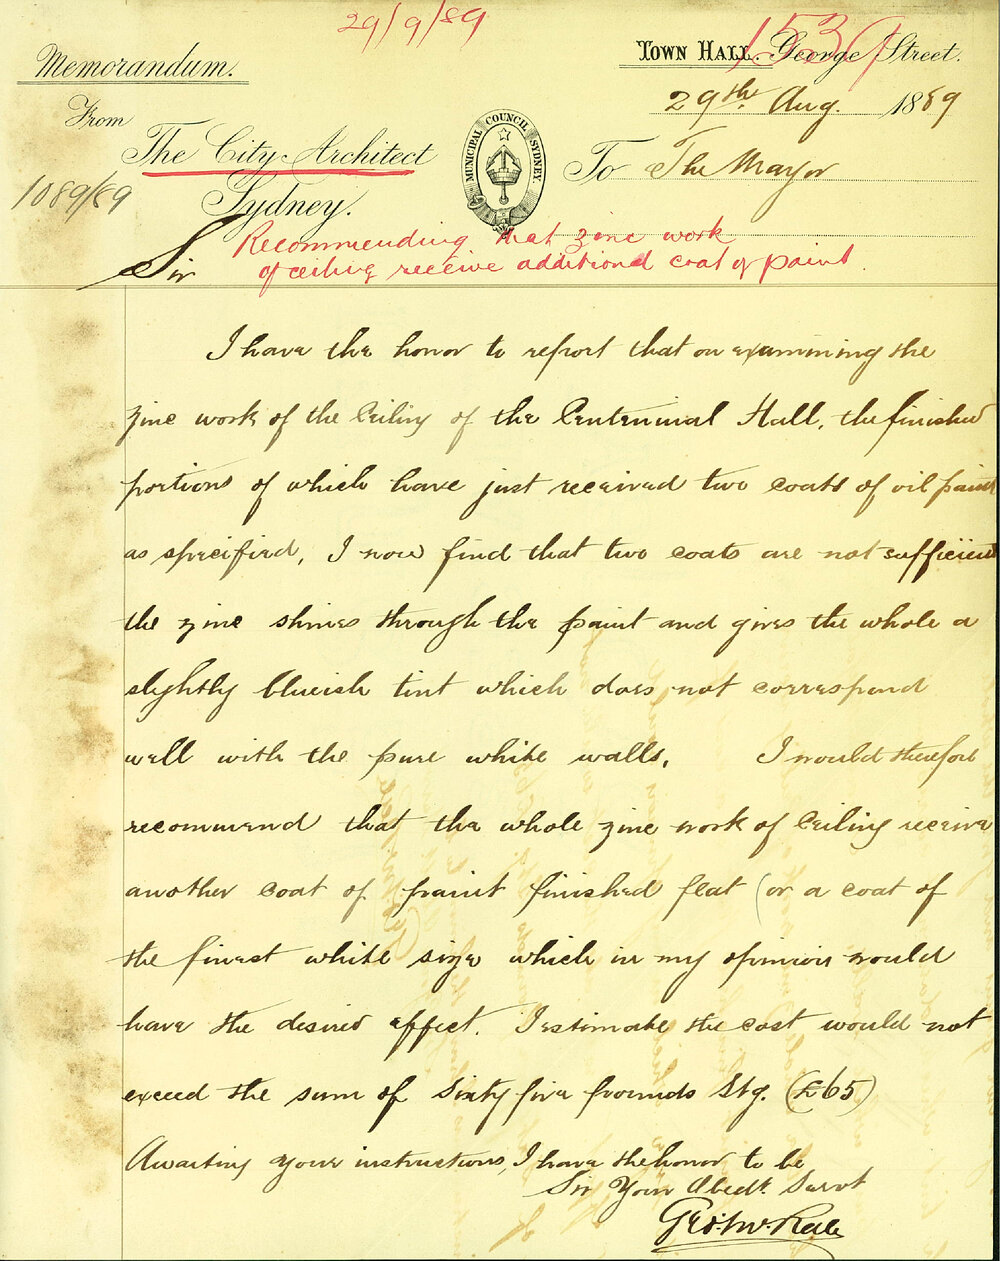 29/9/89
1539
Memorandum.
Town Hall. George Street.
29th. Aug. 1889
From
The City Architect
Sydney.
MUNICIPAL COUNCIL SYDNEY.
To The Mayor
1089/89
Recommending that zinc work
of ceiling receive additional coat of paint.
Sir
I have the honor to report that on examining the
zinc work of the Ceiling of the Centennial Hall, the finished
portions of which have just received two coats of oil paint
as specified, I now find that two coats are not sufficient
the zinc shines through the paint and gives the whole a
slightly blueish tint which does not correspond
well with the pure white walls. I would therefore
recommend that the whole zinc work of Ceiling receive
another coat of paint finished flat (or a coat of
the finest white size which in my opinion would
have the desired effect. I estimate the cost would not
exceed the sum of Sixty five pounds Stg. (£65)
Awaiting your instructions, I have the honor to be
Sir Your Obedt. Servt